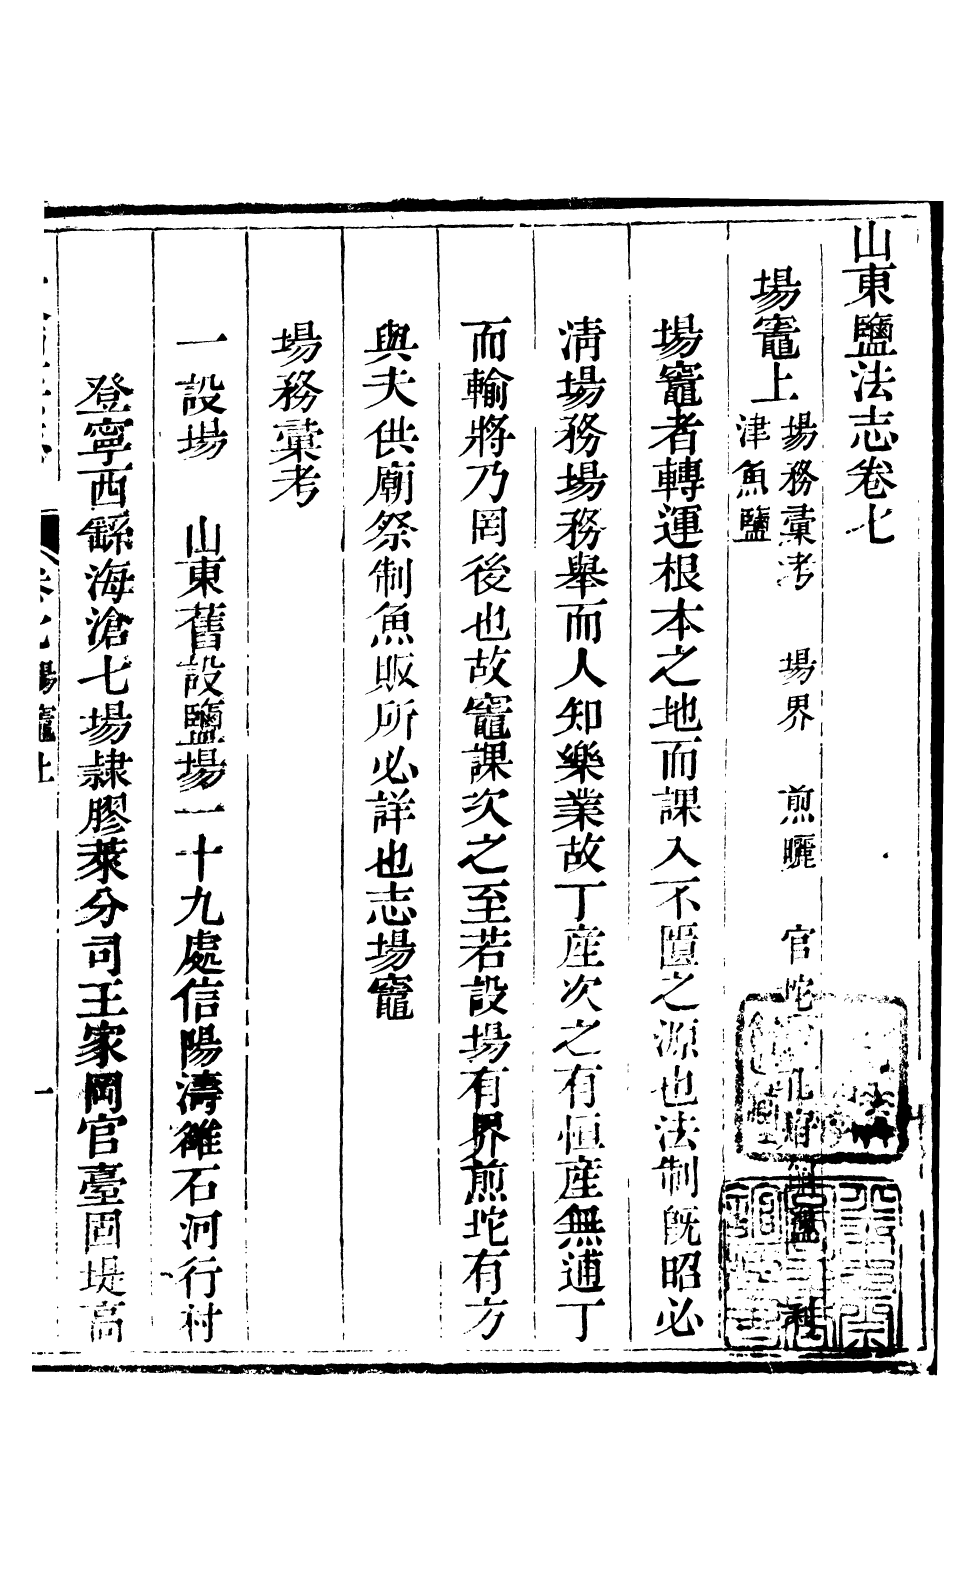 山東鹽法志卷七
場竈上 場務彙考 場界 煎曬 官坨 利
津魚鹽
場竈者轉運根本之地而課入不匱之源也法制旣昭必
清場務場務舉而人知樂業故丁産次之有恒産無逋丁
而輸將乃罔後也故竈課次之至若設場有界煎坨有方
與夫供廟祭制魚販所必詳也志場竈
場務彙考
一設場 山東舊設鹽場一十九處信陽濤雒石河行村
登寧西繇海滄七場隷膠萊分司王家岡官臺固堤高
卷七場竈上 一